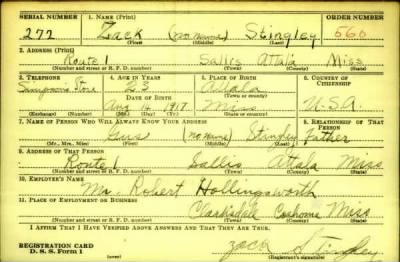 SERIAL NUMBER 1. NAME (Print) ORDER NUMBER
272 Zack (no name) Stingley 560
(First) (Middle) (Last)
2. ADDRESS (Print)
Route 1 Sallis Attala Miss
(Number and street or R. F. D. number) (Town) (County) (State)
3. TELEPHONE 4. AGE IN YEARS 5. PLACE OF BIRTH 6. COUNTRY OF CITIZENSHIP
Simpsons Store 23 Attala
DATE OF BIRTH (Town or county)
Aug 14 1917 Miss U.S.A.
(Exchange) (Number) (Mo.) (Day) (Yr.) (State or country)
7. NAME OF PERSON WHO WILL ALWAYS KNOW YOUR ADDRESS 8. RELATIONSHIP OF THAT PERSON
Gus (no name) Stingley Father
(Mr., Mrs., Miss) (First) (Middle) (Last)
9. ADDRESS OF THAT PERSON
Route 1 Sallis Attala Miss
(Number and street or R. F. D. number) (Town) (County) (State)
10. EMPLOYER'S NAME
Mr. Robert Hollingsworth
11. PLACE OF EMPLOYMENT OR BUSINESS
Clarksdale Coahoma Miss
(Number and street or R. F. D. number) (Town) (County) (State)
I AFFIRM THAT I HAVE VERIFIED ABOVE ANSWERS AND THAT THEY ARE TRUE.
REGISTRATION CARD
D. S. S. Form 1 Zack Stingley
(Registrant's signature)